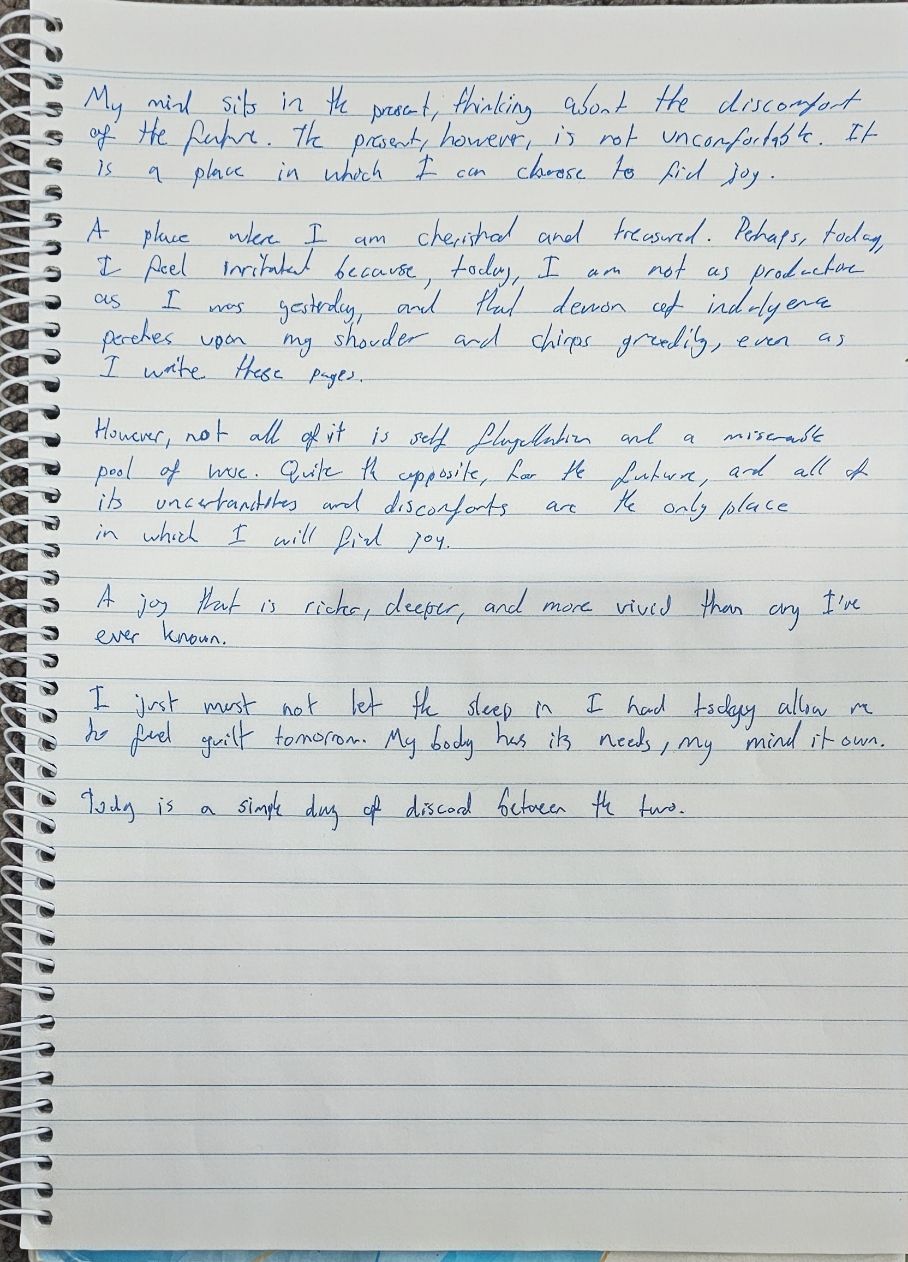 My mind sits in the present, thinking about the discomfort
of the future. The present, however, is not uncomfortable. It
is a place in which I can choose to find joy.
A place where I am cherished and treasured. Perhaps, today,
I feel irritated because, today, I am not as productive
as I was yesterday, and that demon of indulgence
perches upon my shoulder and chirps greedily, even as
I write these pages.
However, not all of it is self flagellation and a miserable
pool of woe. Quite the opposite, for the future, and all of
its uncertainties and discomforts are the only place
in which I will find joy.
A joy that is richer, deeper, and more vivid than any I've
ever known.
I just must not let the sleep in I had today allow me
to feel guilt tomorrow. My body has its needs, my mind it own.
Today is a simple day of discord between the two.